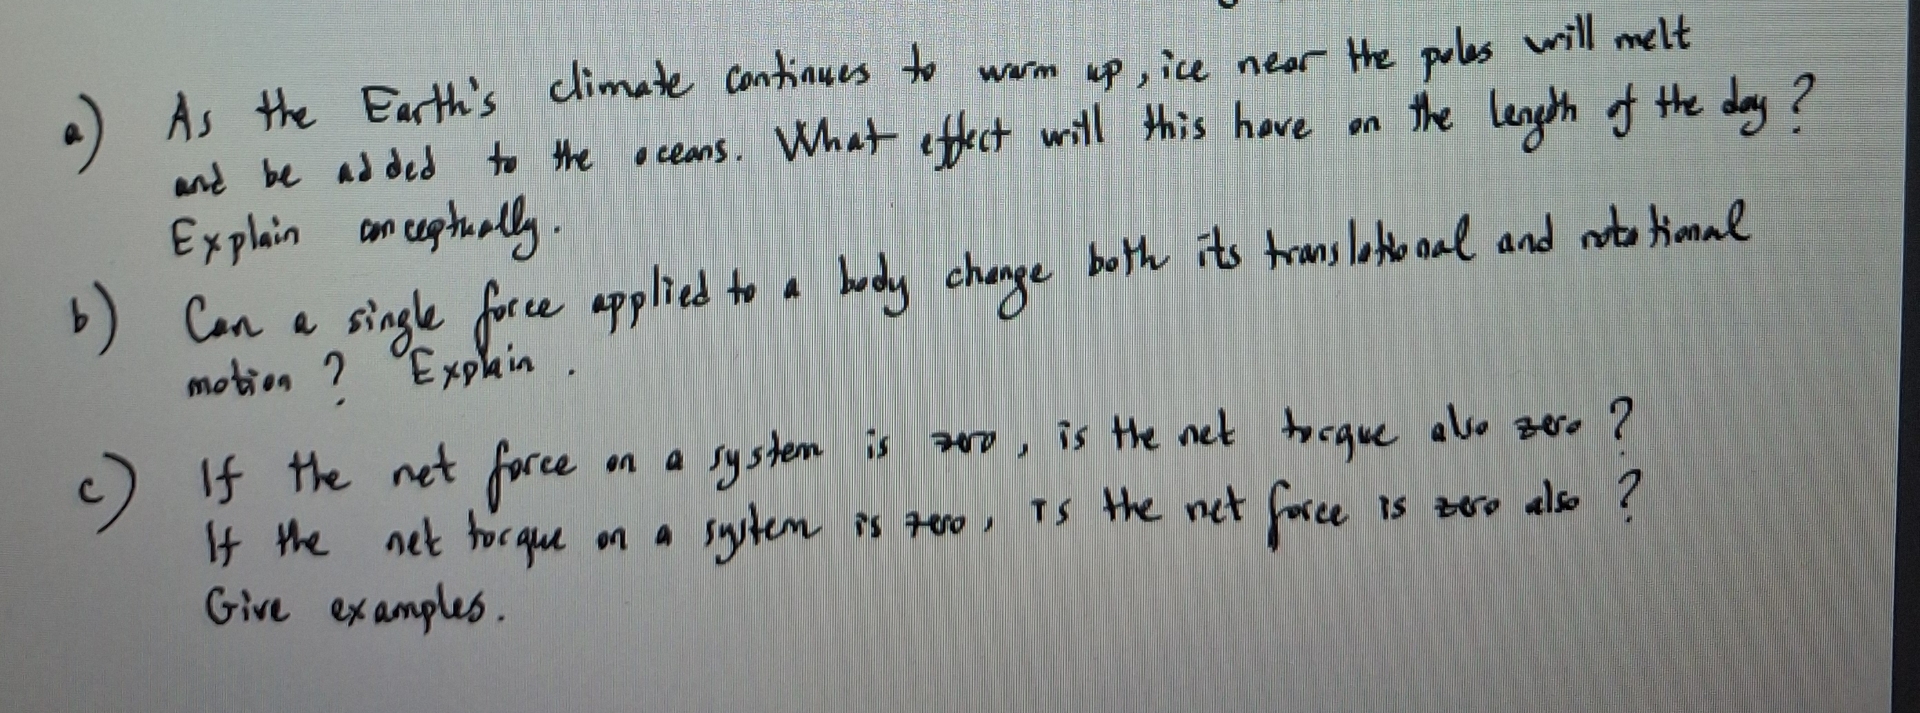 a) As the Earth's climate continues to warm up, ice near the poles will melt
and be added to the oceans. What effect will this have on the length of the day?
Explain conceptually.
b) Can a single force applied to a body change both its translational and rotational
motion? Explain.
c) If the net force on a system is zero, is the net torque also zero?
If the net torque on a system is zero, is the net force is zero also?
Give examples.